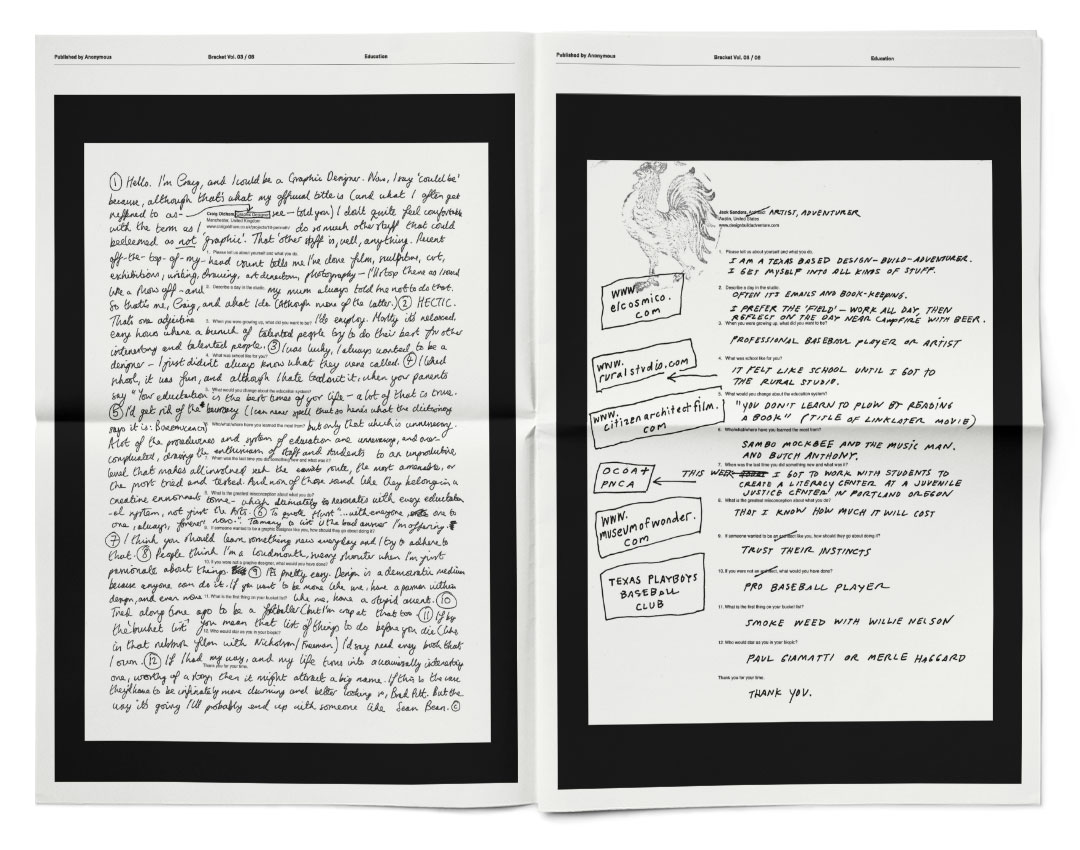 Published by Anonymous
Bracket Vol. 03 / 08
Education
① Hello. I'm Craig, and I could be a Graphic Designer. Now, I say 'could be'
because, although that's what my official title is (and what I often get
referred to as— see—told you) I don't quite feel comfortable
Craig Oldham, Graphic Designer
Manchester, United Kingdom
with the term as I do so much other stuff that could
be deemed as not 'graphic'. That other stuff is, well, anything. Recent
1. Please tell us about yourself and what you do.
off-the-top-of-my-head count tells me I've done film, sculpture, cvt,
exhibitions, writing, drawing, art direction, photography—I'll stop there as I sound
like a show off—and my mum always told me not to do that.
2. Describe a day in the studio.
So that's me, Craig, and what I do (Although more of the latter.) ② HECTIC.
That's one adjective I'd employ. Mostly it's relaxed,
3. When you were growing up, what did you want to be?
easy hours where a bunch of talented people try to do their best for other
interesting and talented people. ③ I was lucky, I always wanted to be a
4. What was school like for you?
designer—I just didn't always know what they were called. ④ I liked
school, it was fun, and although I hate to admit it, when your parents
5. What would you change about the education system?
say "Your education is the best times of your life—a lot of that is true.
⑤ I'd get rid of the bureaucy (I can never spell that so here's what the dictionary
says it is: BUREAUCRACY) but only that which is unnecessary.
6. Who/what/where have you learned the most from?
A lot of the procedures and system of education are unnecessary, and over-
complicated, driving the enthusiasm of staff and students to an unproductive
7. When was the last time you did something new and what was it?
level that makes all involved seek the route, the most amenable, or
the most tried and tested. And non of them sound like they belong in a
creative environment— which ultimately resonates with every education
8. What is the greatest misconception about what you do?
-al system, not just the Arts. ⑥ To quote Hurst "...with everyone one to
one, always, forever, now.". Too many to list is the bad answer I'm offering.
9. If someone wanted to be a graphic designer like you, how should they go about doing it?
⑦ I think you should learn something new everyday and I try to adhere to
that. ⑧ People think I'm a loudmouth, sweary shouter when I'm just
10. If you were not a graphic designer, what would you have done?
passionate about things. ⑨ It's pretty easy. Design is a democratic medium
because anyone can do it. If you want to be more like me, have a passion within
design, and even more like me, have a stupid accent. ⑩
11. What is the first thing on your bucket list?
Tried along time ago to be a footballer (but I'm crap at that too. ⑪ If by
the 'bucket list' you mean that list of things to do before you die (like
12. Who would star as you in your biopic?
in that rubbish film with Nicholson/Freeman) I'd say read every book that
I own. ⑫ If I had my way, and my life turns into a universally interesting
Thank you for your time.
one, worthy of a story then it might attract a big name. If this is the case
they'd have to be infinitely more charming and better looking so, Brad Pitt. But the
way it's going I'll probably end up with someone like Sean Bean. ©
Published by Anonymous
Bracket Vol. 03 / 08
Education
Jack Sanders, ARTIST, ADVENTURER
Austin, United States
www.designbuildadventure.com
1. Please tell us about yourself and what you do.
I AM A TEXAS BASED DESIGN-BUILD-ADVENTURER.
I GET MYSELF INTO ALL KINDS OF STUFF.
WWW.
elcosmico.
com
2. Describe a day in the studio.
OFTEN IT'S EMAILS AND BOOK-KEEPING.
I PREFER THE 'FIELD' - WORK ALL DAY, THEN
REFLECT ON THE DAY NEAR CAMPFIRE WITH BEER.
3. When you were growing up, what did you want to be?
PROFESSIONAL BASEBALL PLAYER OR ARTIST
4. What was school like for you?
IT FELT LIKE SCHOOL UNTIL I GOT TO
THE RURAL STUDIO.
www.
ruralstudio.com
5. What would you change about the education system?
"YOU DON'T LEARN TO PLOW BY READING
A BOOK" (TITLE OF LINKLATER MOVIE)
www.
citizenarchitectfilm.
com
6. Who/what/where have you learned the most from?
SAMBO MOCKBEE AND THE MUSIC MAN.
AND BUTCH ANTHONY.
7. When was the last time you did something new and what was it?
OCOA+
PNCA
THIS WEEK I GOT TO WORK WITH STUDENTS TO
CREATE A LITERACY CENTER AT A JUVENILE
JUSTICE CENTER IN PORTLAND OREGON
8. What is the greatest misconception about what you do?
THAT I KNOW HOW MUCH IT WILL COST
WWW.
museumofwonder.
com
9. If someone wanted to be an architect like you, how should they go about doing it?
TRUST THEIR INSTINCTS
10. If you were not an architect, what would you have done?
PRO BASEBALL PLAYER
TEXAS PLAYBOYS
BASEBALL
CLUB
11. What is the first thing on your bucket list?
SMOKE WEED WITH WILLIE NELSON
12. Who would star as you in your biopic?
PAUL GIAMATTI OR MERLE HAGGARD
Thank you for your time.
THANK YOU.